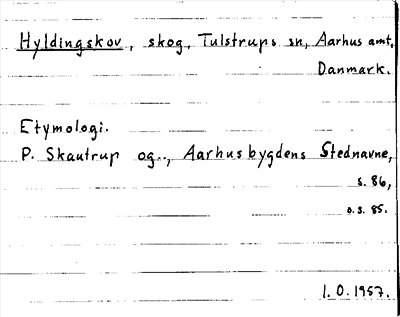 Hyldingskov, skog, Tulstrups sn, Aarhus amt,
Danmark.
Etymologi.
P. Skautrup og.., Aarhusbygdens Stednavne,
s. 86,
o.s. 85.
I.O. 1957.